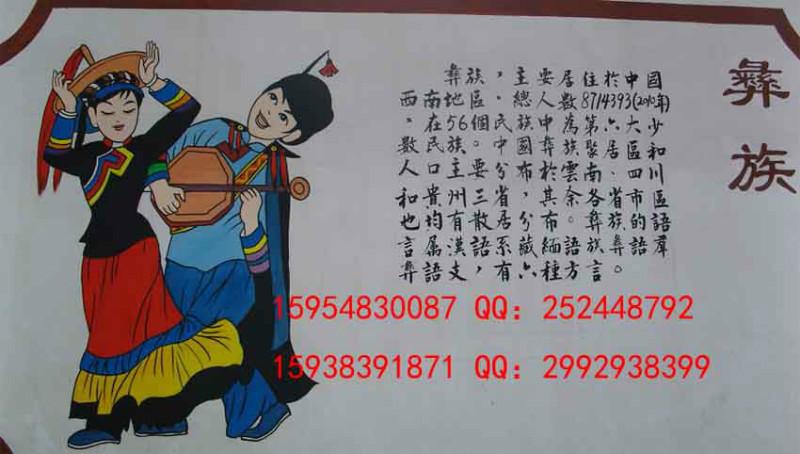 彝族
彝族，主要居住於中國
西南地區，總人數8714393(2010年)
。在56個民族中為第六大少
數民族。中國彝族聚居區和
人口主要分布於雲南、四川
和貴州三省，其余各省市區
也均有散居，分布。彝族的語
言属漢語系藏緬語族彝語羣
彝語支，有六種方言。
15954830087 QQ：252448792
15938391871 QQ：2992938399